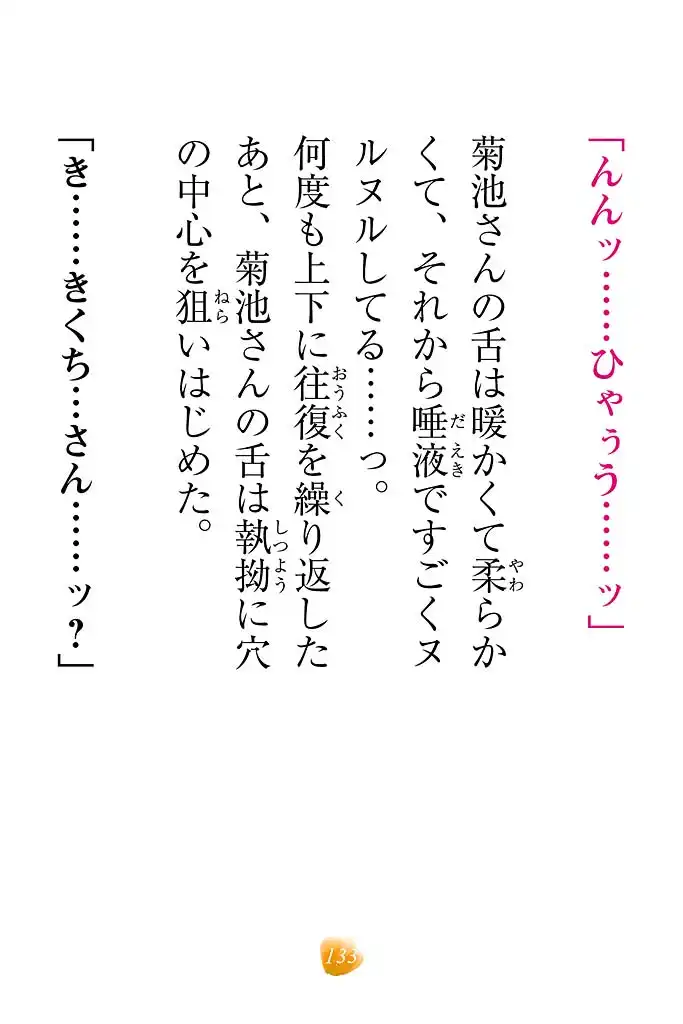 「んんッ……ひゃぅう……ッ」
菊池さんの舌は暖かくて柔らか
くて、それから唾液ですごくヌ
ルヌルしてる……っ。
何度も上下に往復を繰り返した
あと、菊池さんの舌は執拗に穴
の中心を狙いはじめた。
「き……きくち…さん……ッ？」
133